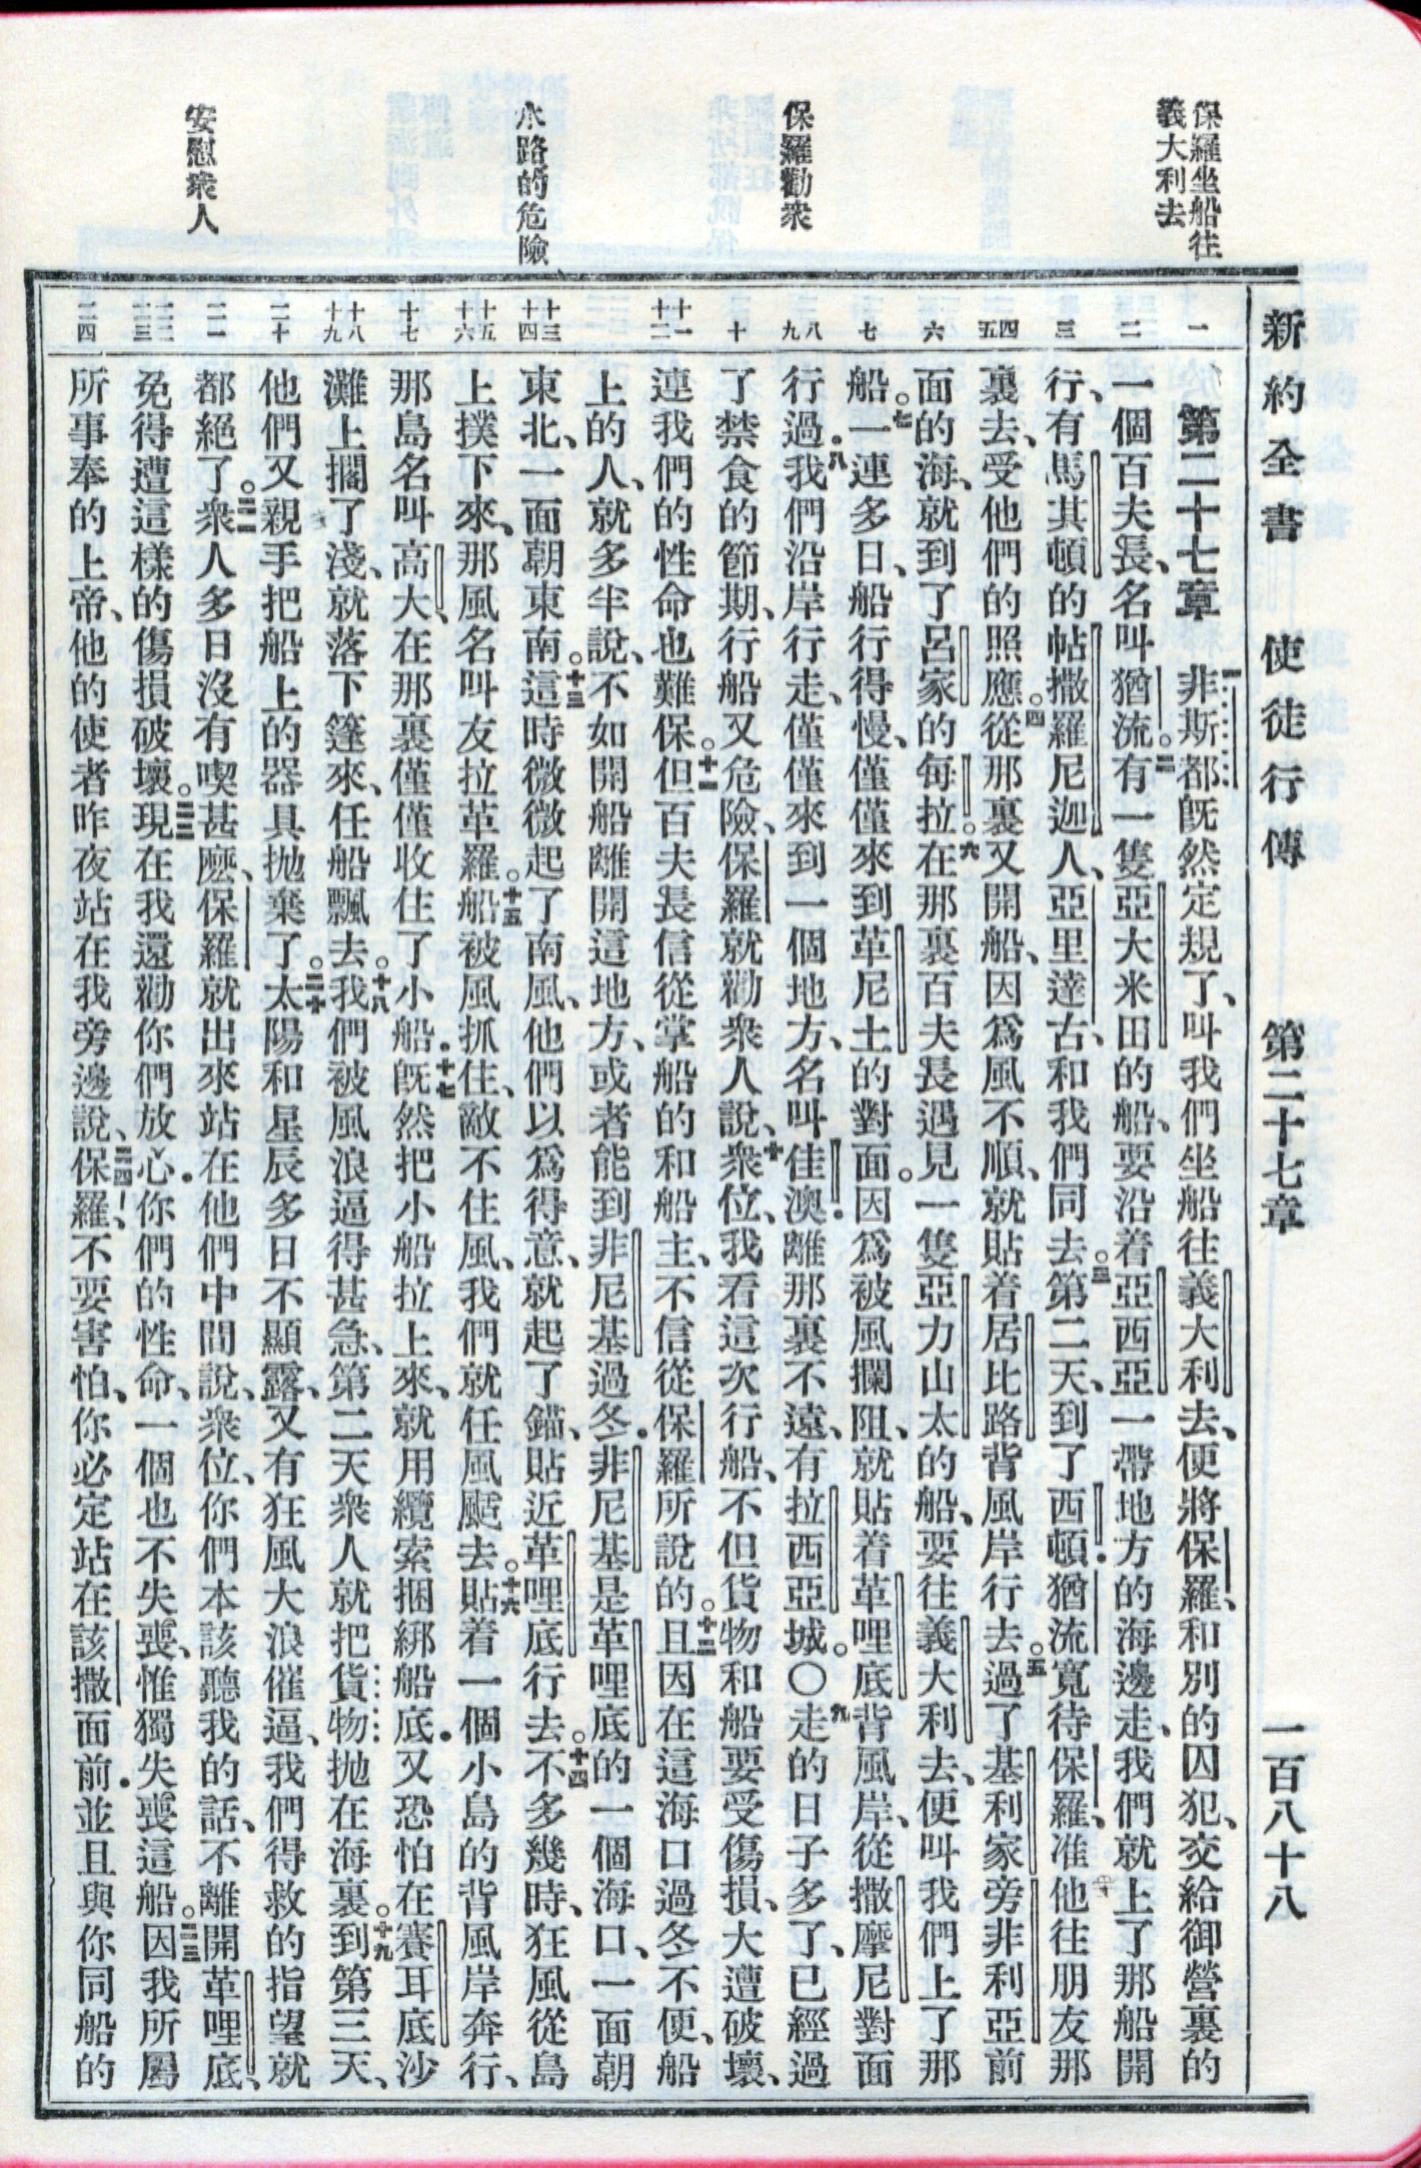 新約全書 使徒行傳 第二十七章 一百八十八
保羅坐船往
義大利去
保羅勸衆
水路的危險
安慰衆人
一
二
三
四
五
六
七
八
九
十
十一
十二
十三
十四
十五
十六
十七
十八
十九
二十
二一
二二
二三
二四
第二十七章 一非斯都旣然定規了、叫我們坐船往義大利去、便將保羅、和別的囚犯、交給御營裏的
一個百夫長、名叫猶流。二有一隻亞大米田的船、要沿着亞西亞一帶地方的海邊走、我們就上了那船開
行、有馬其頓的帖撒羅尼迦人、亞里達古、和我們同去。三第二天、到了西頓．猶流寬待保羅、准他往朋友那
裏去、受他們的照應。四從那裏又開船、因爲風不順、就貼着居比路背風岸行去。五過了基利家旁非利亞前
面的海、就到了呂家的每拉。六在那裏百夫長遇見一隻亞力山太的船、要往義大利去、便叫我們上了那
船。七一連多日、船行得慢、僅僅來到革尼土的對面。因爲被風攔阻、就貼着革哩底背風岸、從撒摩尼對面
行過．八我們沿岸行走、僅僅來到一個地方、名叫佳澳．離那裏不遠、有拉西亞城。〇九走的日子多了、已經過
了禁食的節期、行船又危險、保羅就勸衆人說、十衆位、我看這次行船、不但貨物和船要受傷損、大遭破壞、
連我們的性命也難保。十一但百夫長信從掌船的和船主、不信從保羅所說的。十二且因在這海口過冬不便、船
上的人、就多半說、不如開船離開這地方、或者能到非尼基過冬．非尼基是革哩底的一個海口、一面朝
東北、一面朝東南。十三這時微微起了南風、他們以爲得意、就起了錨、貼近革哩底行去。十四不多幾時、狂風從島
上撲下來、那風名叫友拉革羅。十五船被風抓住、敵不住風、我們就任風颳去。十六貼着一個小島的背風岸奔行、
那島名叫高大、在那裏僅僅收住了小船．十七旣然把小船拉上來、就用纜索捆綁船底．又恐怕在賽耳底沙
灘上擱了淺、就落下篷來、任船飄去。十八我們被風浪逼得甚急、第二天衆人就把貨物抛在海裏。十九到第三天、
他們又親手把船上的器具抛棄了。二十太陽和星辰多日不顯露、又有狂風大浪催逼、我們得救的指望就
都絕了。二一衆人多日沒有喫甚麽、保羅就出來站在他們中間說、衆位、你們本該聽我的話、不離開革哩底、
免得遭這樣的傷損破壞。二二現在我還勸你們放心．你們的性命、一個也不失喪、惟獨失喪這船。二三因我所屬
所事奉的上帝、他的使者昨夜站在我旁邊說、二四保羅、不要害怕、你必定站在該撒面前．並且與你同船的